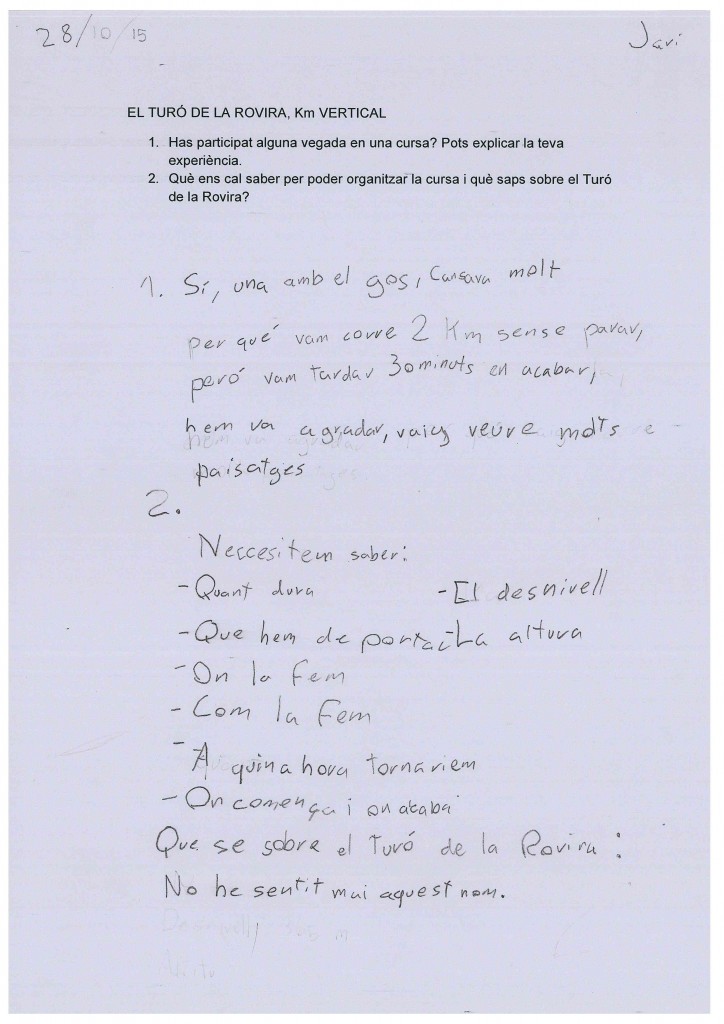 28/10/15 Javi
EL TURÓ DE LA ROVIRA, Km VERTICAL
1. Has participat alguna vegada en una cursa? Pots explicar la teva
experiència.
2. Què ens cal saber per poder organitzar la cursa i què saps sobre el Turó
de la Rovira?
1. Sí, una amb el gos, Cansava molt
per qué vam corre 2 Km sense parar,
peró vam tardar 30 minuts en acabar,
hem va agradar, vaig veure molts
paisatges
2.
Neccesitem saber:
- Quant dura - El desnivell
- Que hem de portar - La altura
- On la fem
- Com la fem
- A quina hora tornariem
- On comença i on acaba
Que se sobre el Turó de la Rovira:
No he sentit mai aquest nom.